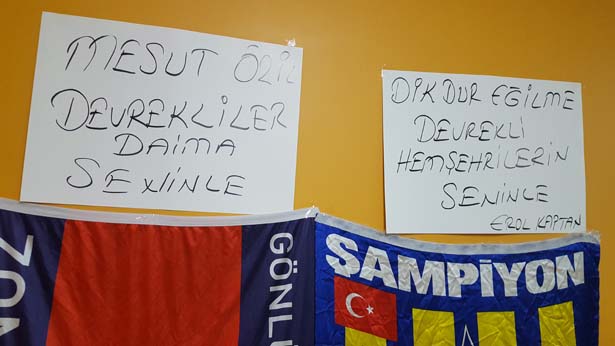 MESUT ÖZİL
DEVREKLİLER
DAİMA
SENİNLE
DİK DUR EĞİLME
DEVREKLİ
HEMŞEHRİLERİN
SENİNLE
EROL KAPTAN
ZON
GÖNLÜ
ŞAMPİYON